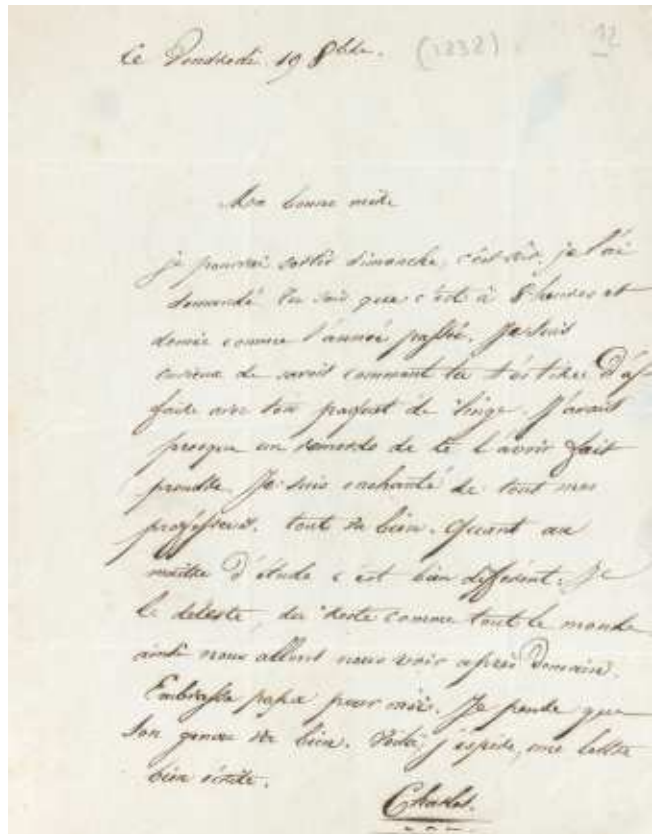 Ce Vendredi 19 8bre. (1838) 12
Ma bonne mère
je pourrai sortir dimanche, c'est sûr, je l'ai
demandé tu sais que c'est à 8 heures et
demie comme l'année passée. Je suis
curieux de savoir comment tu t'es tirée d'af-
faire avec ton paquet de linge. J'avais
presque un remords de te l'avoir fait
prendre. Je suis enchanté de tout mes
professeurs. tout va bien. Quant au
maître d'étude c'est bien différent. Je
le déteste, du reste comme tout le monde
ainsi nous allons nous voir après Demain.
Embrasse papa pour moi. Je pense que
son genou va bien. Voilà j'espère, une lettre
bien écrite.
Charles.